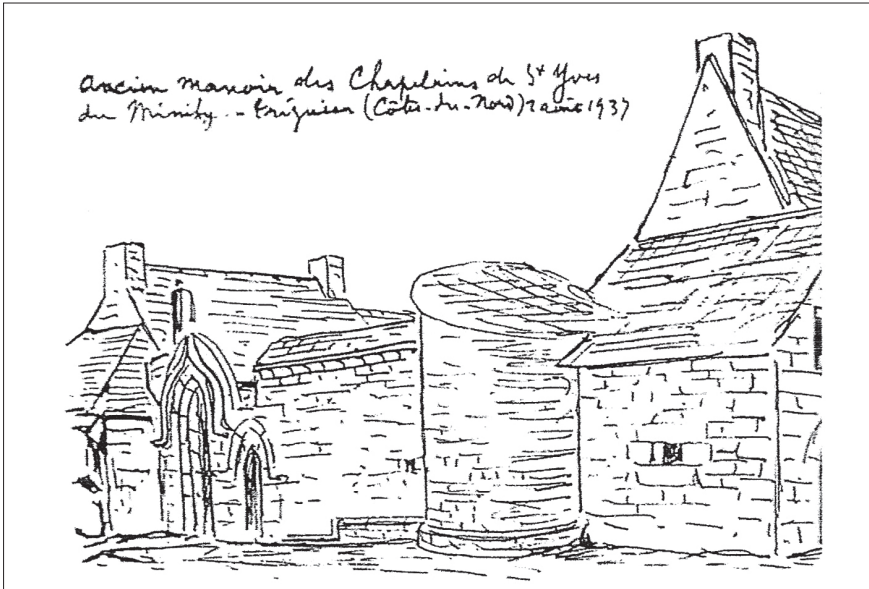 Ancien manoir des Chapelains de St Yves
du Minihy - Tréguier (Côtes-du-Nord) 2 août 1937